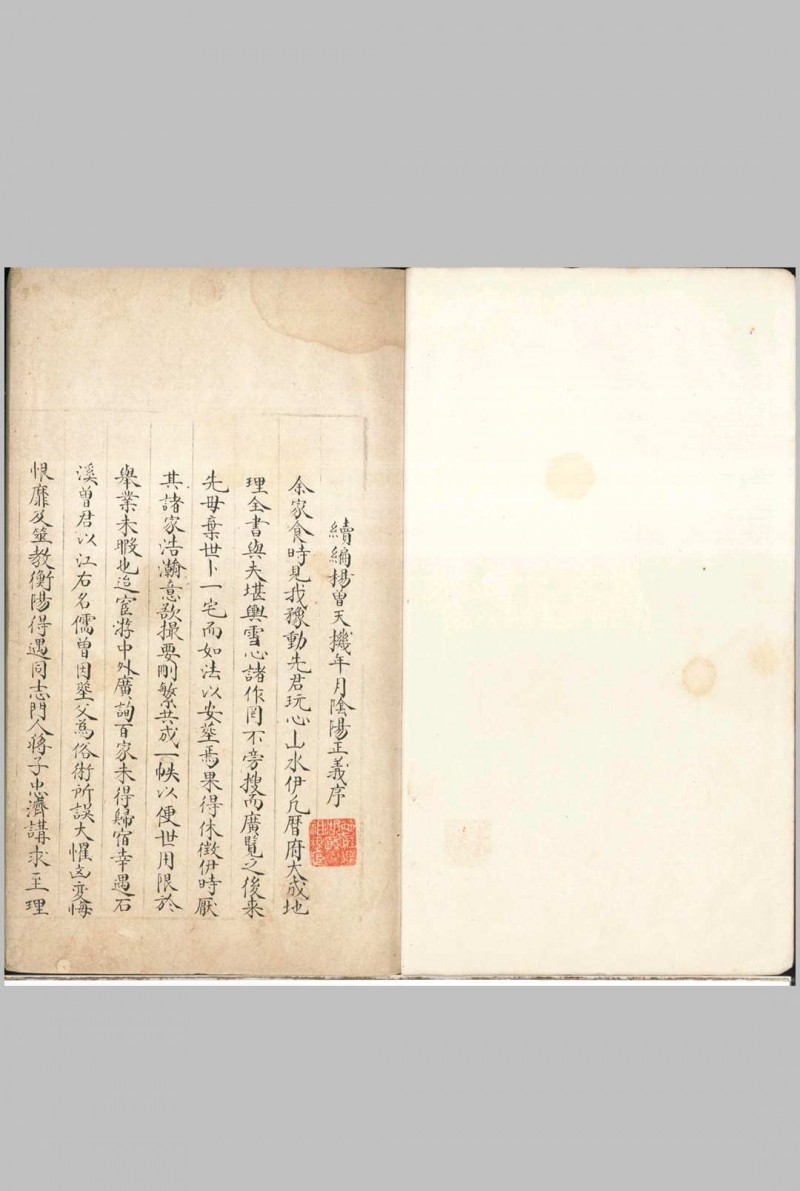 續編楊曾天機年月陰陽正義序
余家食時見我豫動先君玩心山水伊凡曆府大成地
理全書與夫堪輿雪心諸作罔不旁搜而廣覽之後来
先母棄世卜一宅而如法以安塟焉果得休徵伊時厭
其諸家浩瀚意欲撮要刪繁共成一帙以便世用限於
舉業未暇也迨宦遊中外廣詢百家未得歸宿幸遇石
溪曾君以江右名儒曾因塟父為俗術所誤大懼凶变悔
恨靡及筮教衡陽得遇同志門人蔣子忠濟講求至理